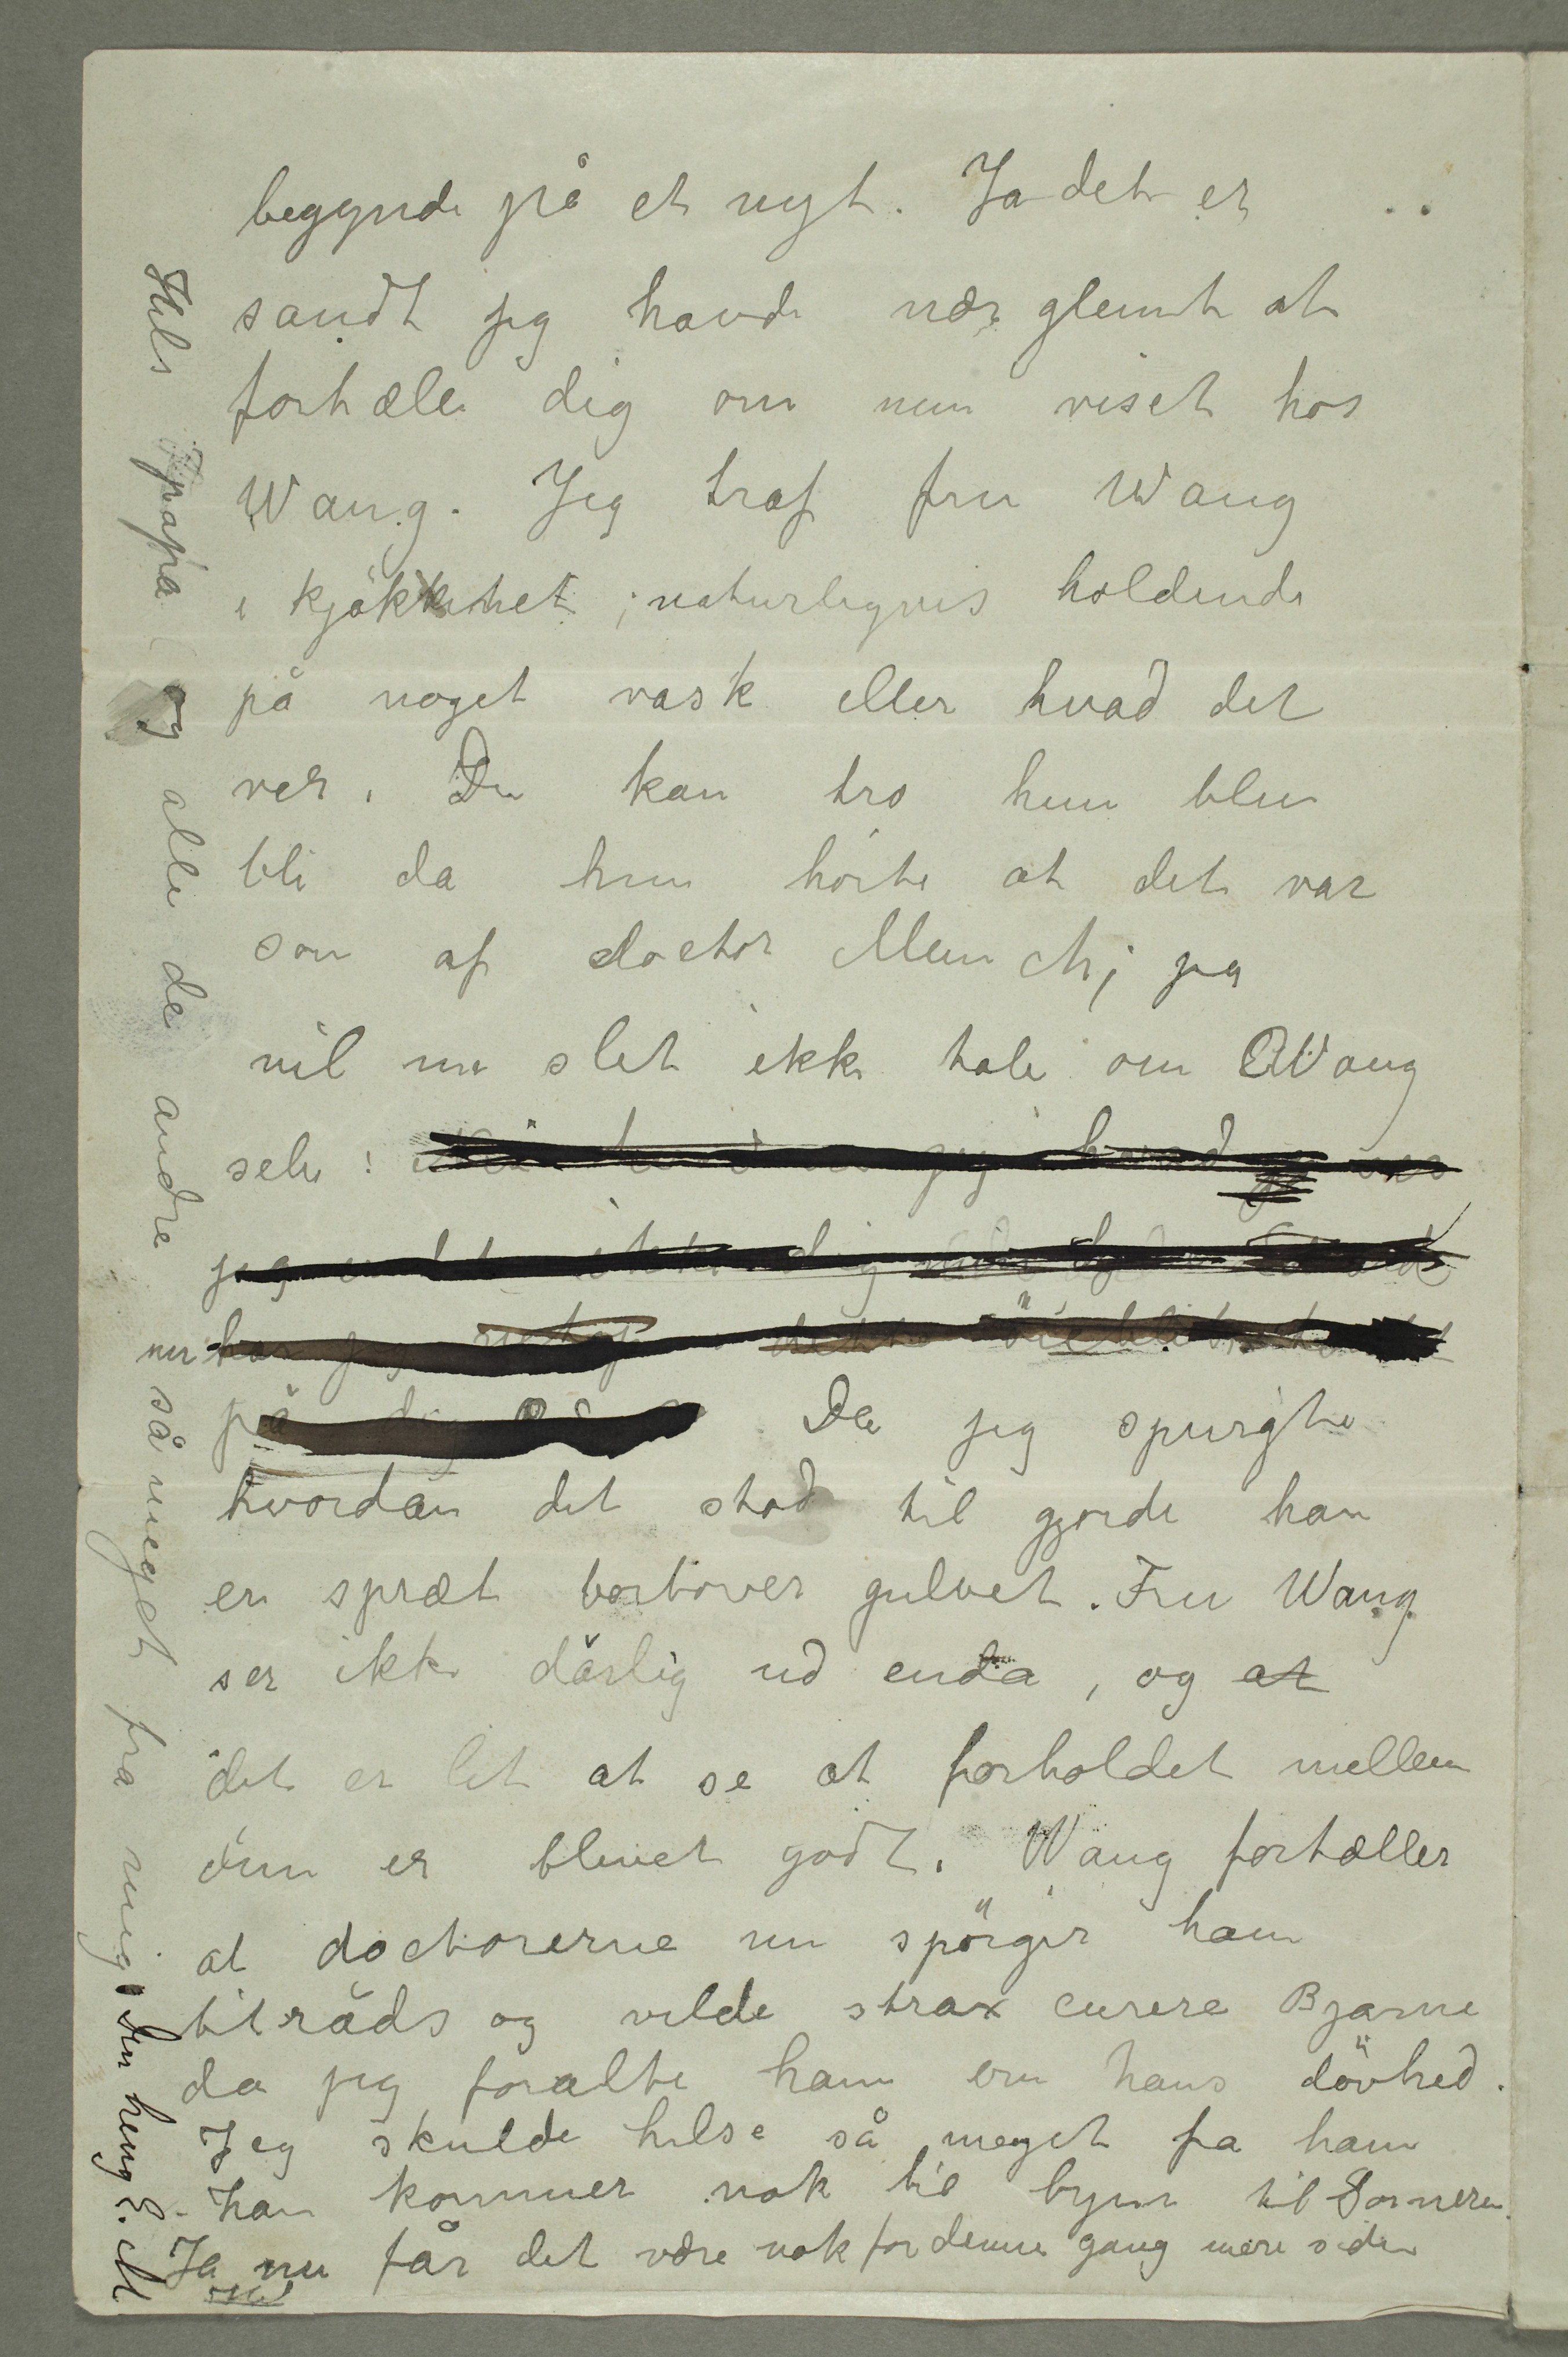 begynde på et nyt. Ja det er
sandt jeg havde nær glemt at
fortæle dig om min viset hos
Wang. Jeg traf fru Wang
i kjøkkenet ; naturligvis holdende
på noget vask eller hvad det
ver. Du kan tro hun blev
bli da hun hörte at det var
søn af doctor Munch; jeg
vil nu slet ikke tale om Wang
selv :
jeg ikke dig
nu har jeg
på Da jeg spurgte
hvordan det stod til gjorde han
en spræt bortover gulvet. Fru Wang
ser ikke dårlig ud enda, og at
det er let at se at forholdet mellem
dem er blevet godt. Wang fortæller
at doctorerne nu spörger ham
tilråds og vilde strax curere Bjarne
da jeg foralte ham om hans dövhed.
Jeg skulde hilse så meget fra ham
- han kommer nok til byen til Sommeren.
Ja nu får det være nok for denne gang mere siden
Hils papa og alle de andre så meget fra mig. din heng E. M